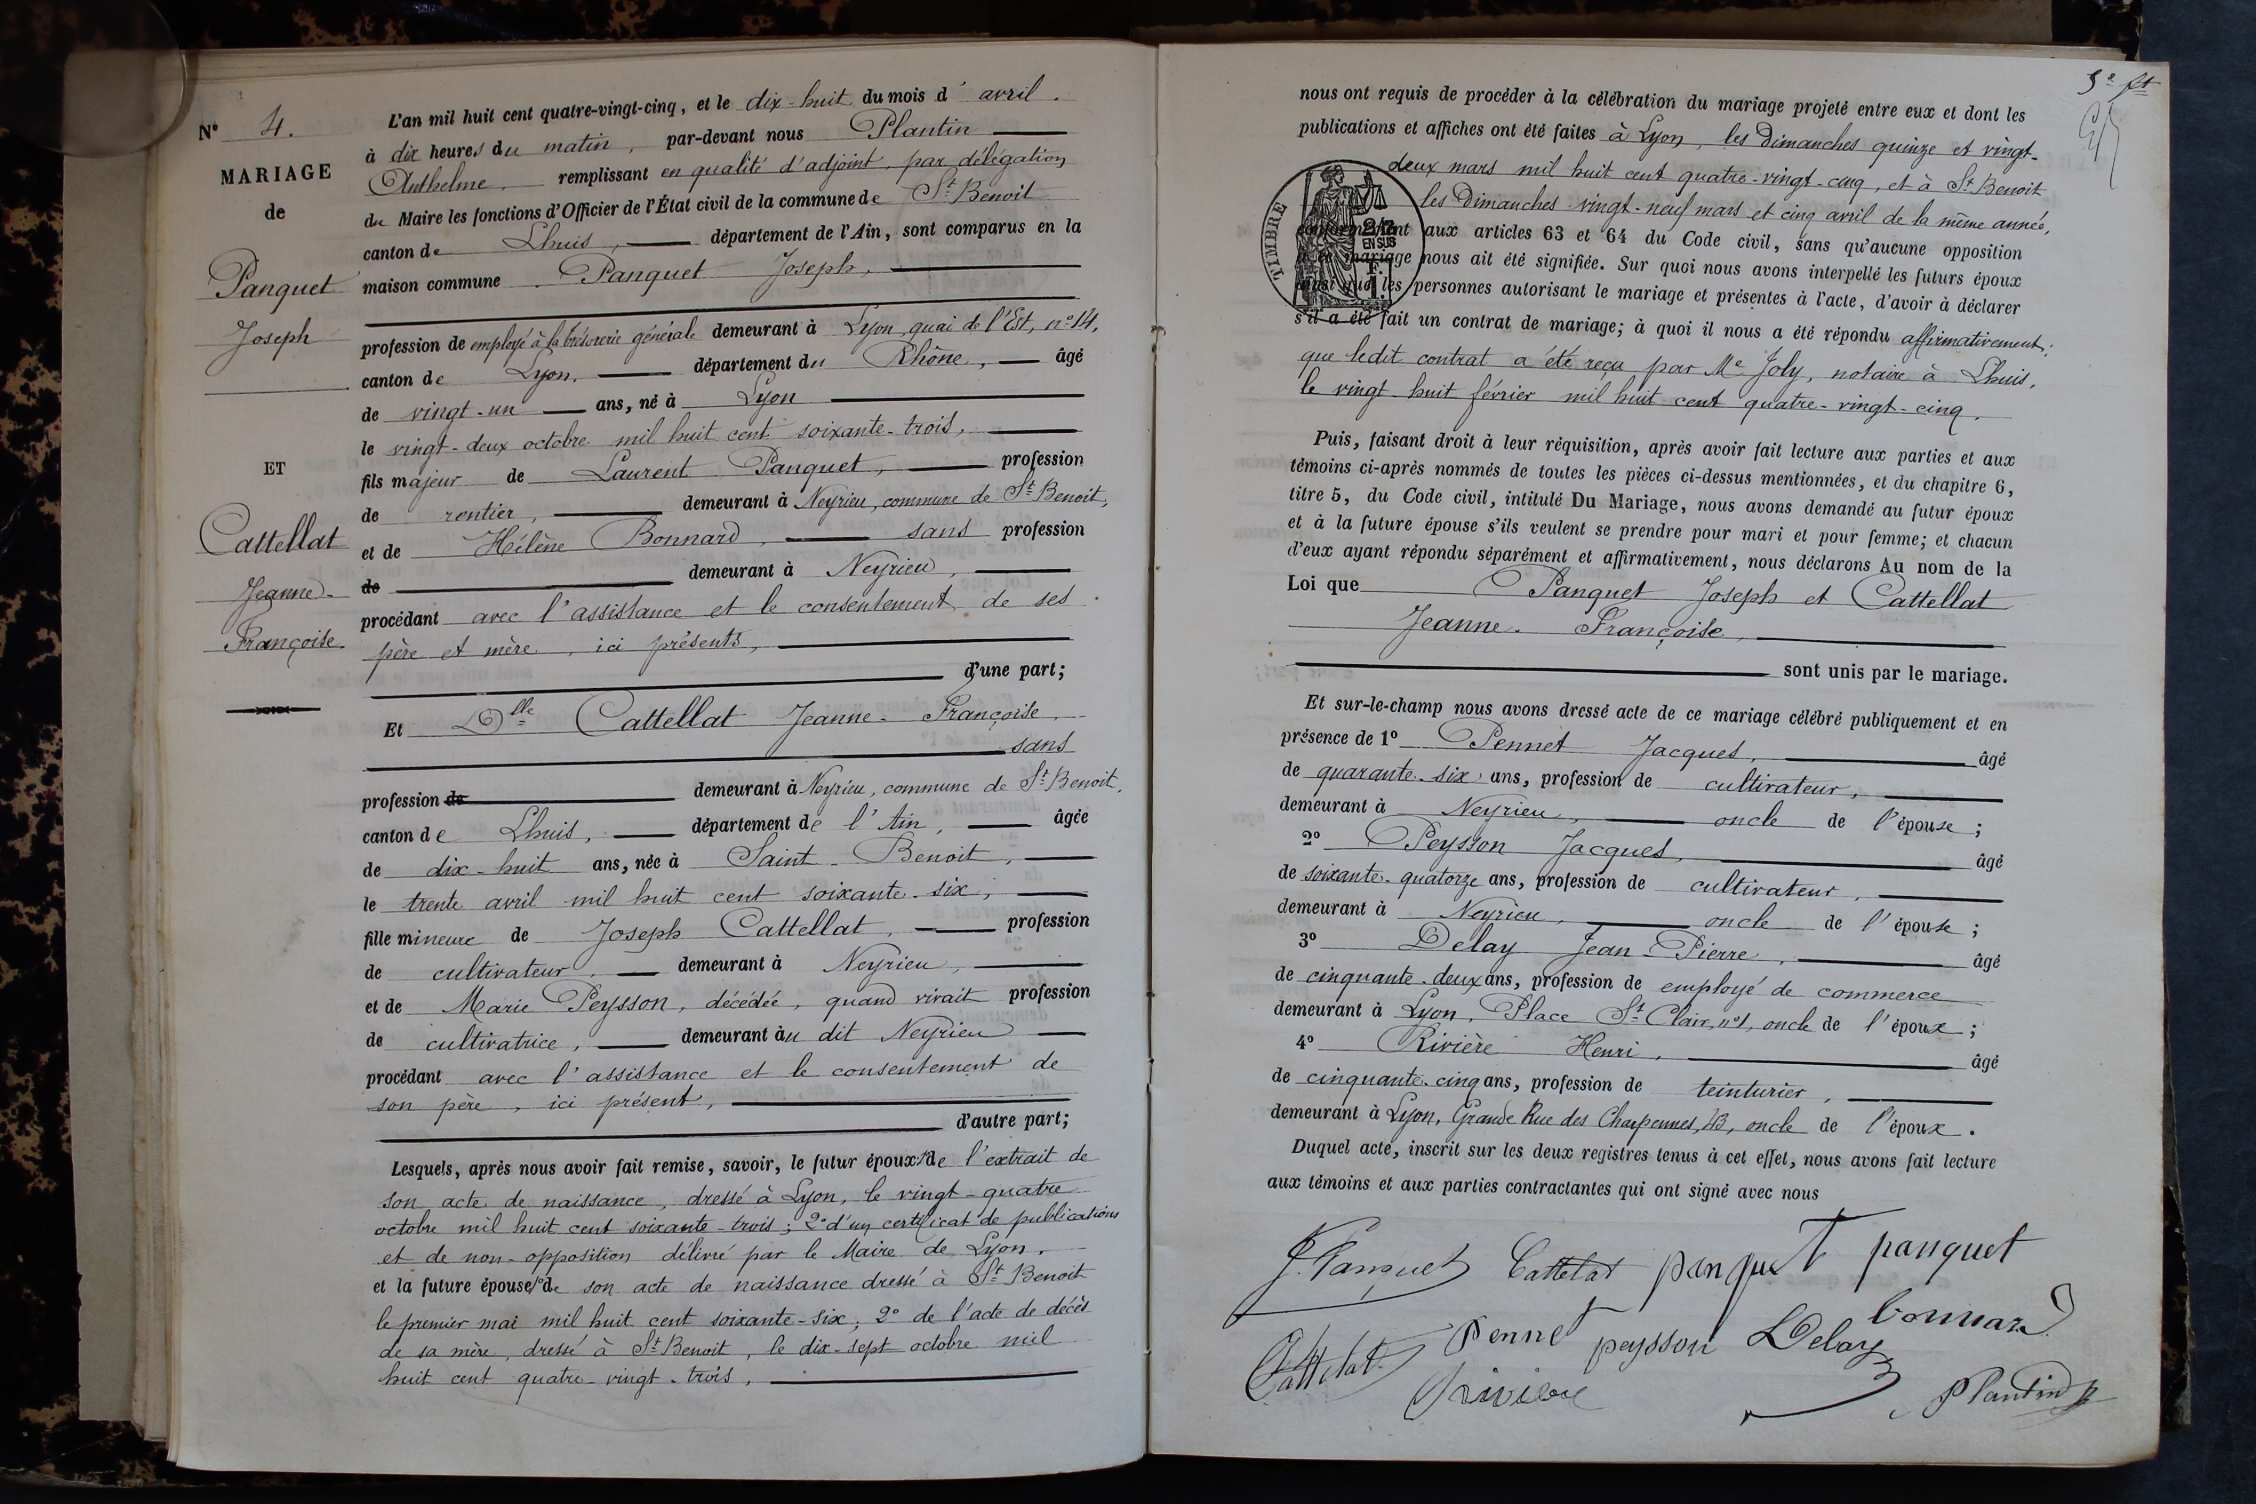 N° 4.
MARIAGE
de
Panquet
Joseph
ET
Cattellat
Jeanne-
Françoise.
L'an mil huit cent quatre-vingt-cinq, et le dix-huit du mois d'avril.
à dix heures du matin, par-devant nous Plantin
Anthelme, remplissant en qualité d'adjoint, par délégation
du Maire les fonctions d'Officier de l'État civil de la commune de St Benoit
canton de Lhuis, département de l'Ain, sont comparus en la
maison commune Panquet Joseph,
profession de employé à la trésorerie générale demeurant à Lyon, quai de l'Est, n° 14,
canton de Lyon, département du Rhône, âgé
de vingt-un ans, né à Lyon
le vingt-deux octobre mil huit cent soixante-trois,
fils majeur de Laurent Panquet, profession
de rentier, demeurant à Neyrieu, commune de St Benoit,
et de Hélène Bonnard, sans profession
de demeurant à Neyrieu,
procédant avec l'assistance et le consentement de ses
père et mère, ici présents,
d'une part;
Et Dlle Cattellat Jeanne-Françoise,
sans
profession de demeurant à Neyrieu, commune de St Benoit,
canton de Lhuis, département de l'Ain, âgée
de dix-huit ans, née à Saint-Benoit,
le trente avril mil huit cent soixante-six,
fille mineure de Joseph Cattellat, profession
de cultivateur, demeurant à Neyrieu,
et de Marie Peysson, décédée, quand vivait profession
de cultivatrice, demeurant au dit Neyrieu
procédant avec l'assistance et le consentement de
son père, ici présent,
d'autre part;
Lesquels, après nous avoir fait remise, savoir, le futur époux 1° de l'extrait de
son acte de naissance, dressé à Lyon, le vingt-quatre
octobre mil huit cent soixante-trois; 2° d'un certificat de publications
et de non-opposition délivré par le Maire de Lyon,
et la future épouse 1° de son acte de naissance dressé à St Benoit
le premier mai mil huit cent soixante-six; 2° de l'acte de décès
de sa mère, dressé à St Benoit, le dix-sept octobre mil
huit cent quatre-vingt-trois,
nous ont requis de procéder à la célébration du mariage projeté entre eux et dont les
publications et affiches ont été faites à Lyon, les Dimanches quinze et vingt-
deux mars mil huit cent quatre-vingt-cinq, et à St Benoit
les Dimanches vingt-neuf mars et cinq avril de la même année,
conformément aux articles 63 et 64 du Code civil, sans qu'aucune opposition
à ce mariage nous ait été signifiée. Sur quoi nous avons interpellé les futurs époux
ainsi que les personnes autorisant le mariage et présentes à l'acte, d'avoir à déclarer
s'il a été fait un contrat de mariage; à quoi il nous a été répondu affirmativement:
que ledit contrat a été reçu par Me Joly, notaire à Lhuis,
le vingt-huit février mil huit cent quatre-vingt-cinq.
TIMBRE
2/10
EN SUS
F.
1.
Puis, faisant droit à leur réquisition, après avoir fait lecture aux parties et aux
témoins ci-après nommés de toutes les pièces ci-dessus mentionnées, et du chapitre 6,
titre 5, du Code civil, intitulé Du Mariage, nous avons demandé au futur époux
et à la future épouse s'ils veulent se prendre pour mari et pour femme; et chacun
d'eux ayant répondu séparément et affirmativement, nous déclarons Au nom de la
Loi que Panquet Joseph et Cattellat
Jeanne-Françoise,
sont unis par le mariage.
Et sur-le-champ nous avons dressé acte de ce mariage célébré publiquement et en
présence de 1° Pennet Jacques, âgé
de quarante-six ans, profession de cultivateur,
demeurant à Neyrieu, oncle de l'épouse;
2° Peysson Jacques, âgé
de soixante-quatorze ans, profession de cultivateur,
demeurant à Neyrieu, oncle de l'épouse;
3° Delay Jean-Pierre, âgé
de cinquante-deux ans, profession de employé de commerce
demeurant à Lyon, Place St Clair, n° 1, oncle de l'époux;
4° Rivière Henri, âgé
de cinquante-cinq ans, profession de teinturier,
demeurant à Lyon, Grande Rue des Charpennes, 43, oncle de l'époux.
Duquel acte, inscrit sur les deux registres tenus à cet effet, nous avons fait lecture
aux témoins et aux parties contractantes qui ont signé avec nous
J. Panquet Cattelat panquet panquet
Cattelat Pennet peysson Delay bonnard
Rivière Plantin